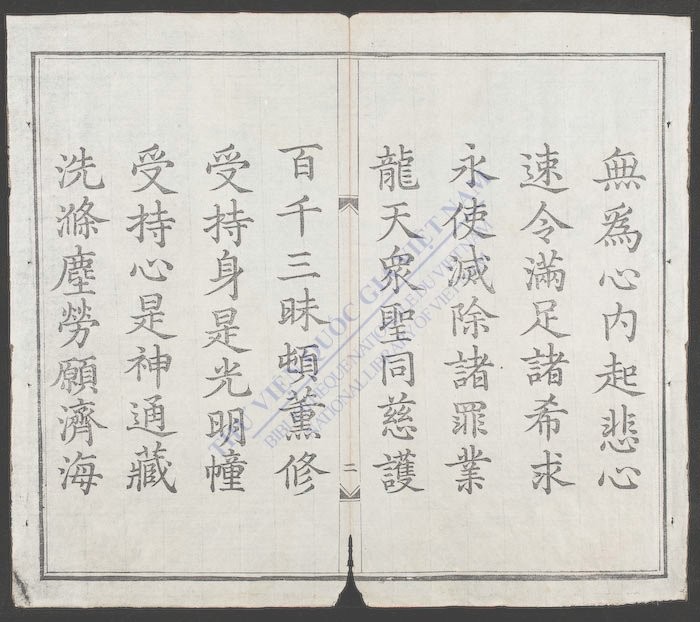 無爲心内起悲心
速令滿足諸希求
永使滅除諸罪業
龍天衆聖同慈護
二
百千三昧頓薰修
受持身是光明幢
受持心是神通藏
洗滌塵勞願濟海
THƯ VIỆN QUỐC GIA VIỆT NAM
BIBLIOTHEQUE NATIONALE DU VIETNAM
NATIONAL LIBRARY OF VIETNAM